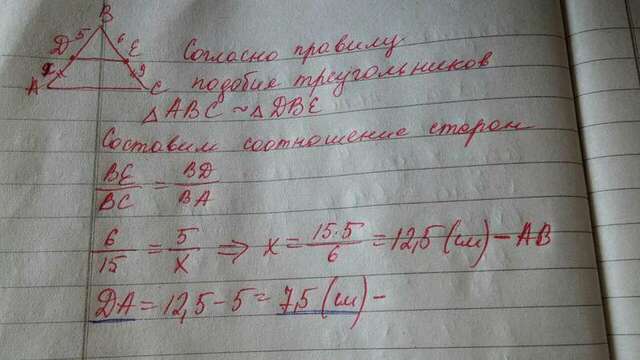 B
5 6
D E
x 9
A C
Согласно правилу
подобия треугольников
△ABC ~ △DBE
Составим соотношение сторон
BE/BC = BD/BA
6/15 = 5/x ⇒ x = 15·5/6 = 12,5 (см) – AB
DA = 12,5 – 5 = 7,5 (см) –